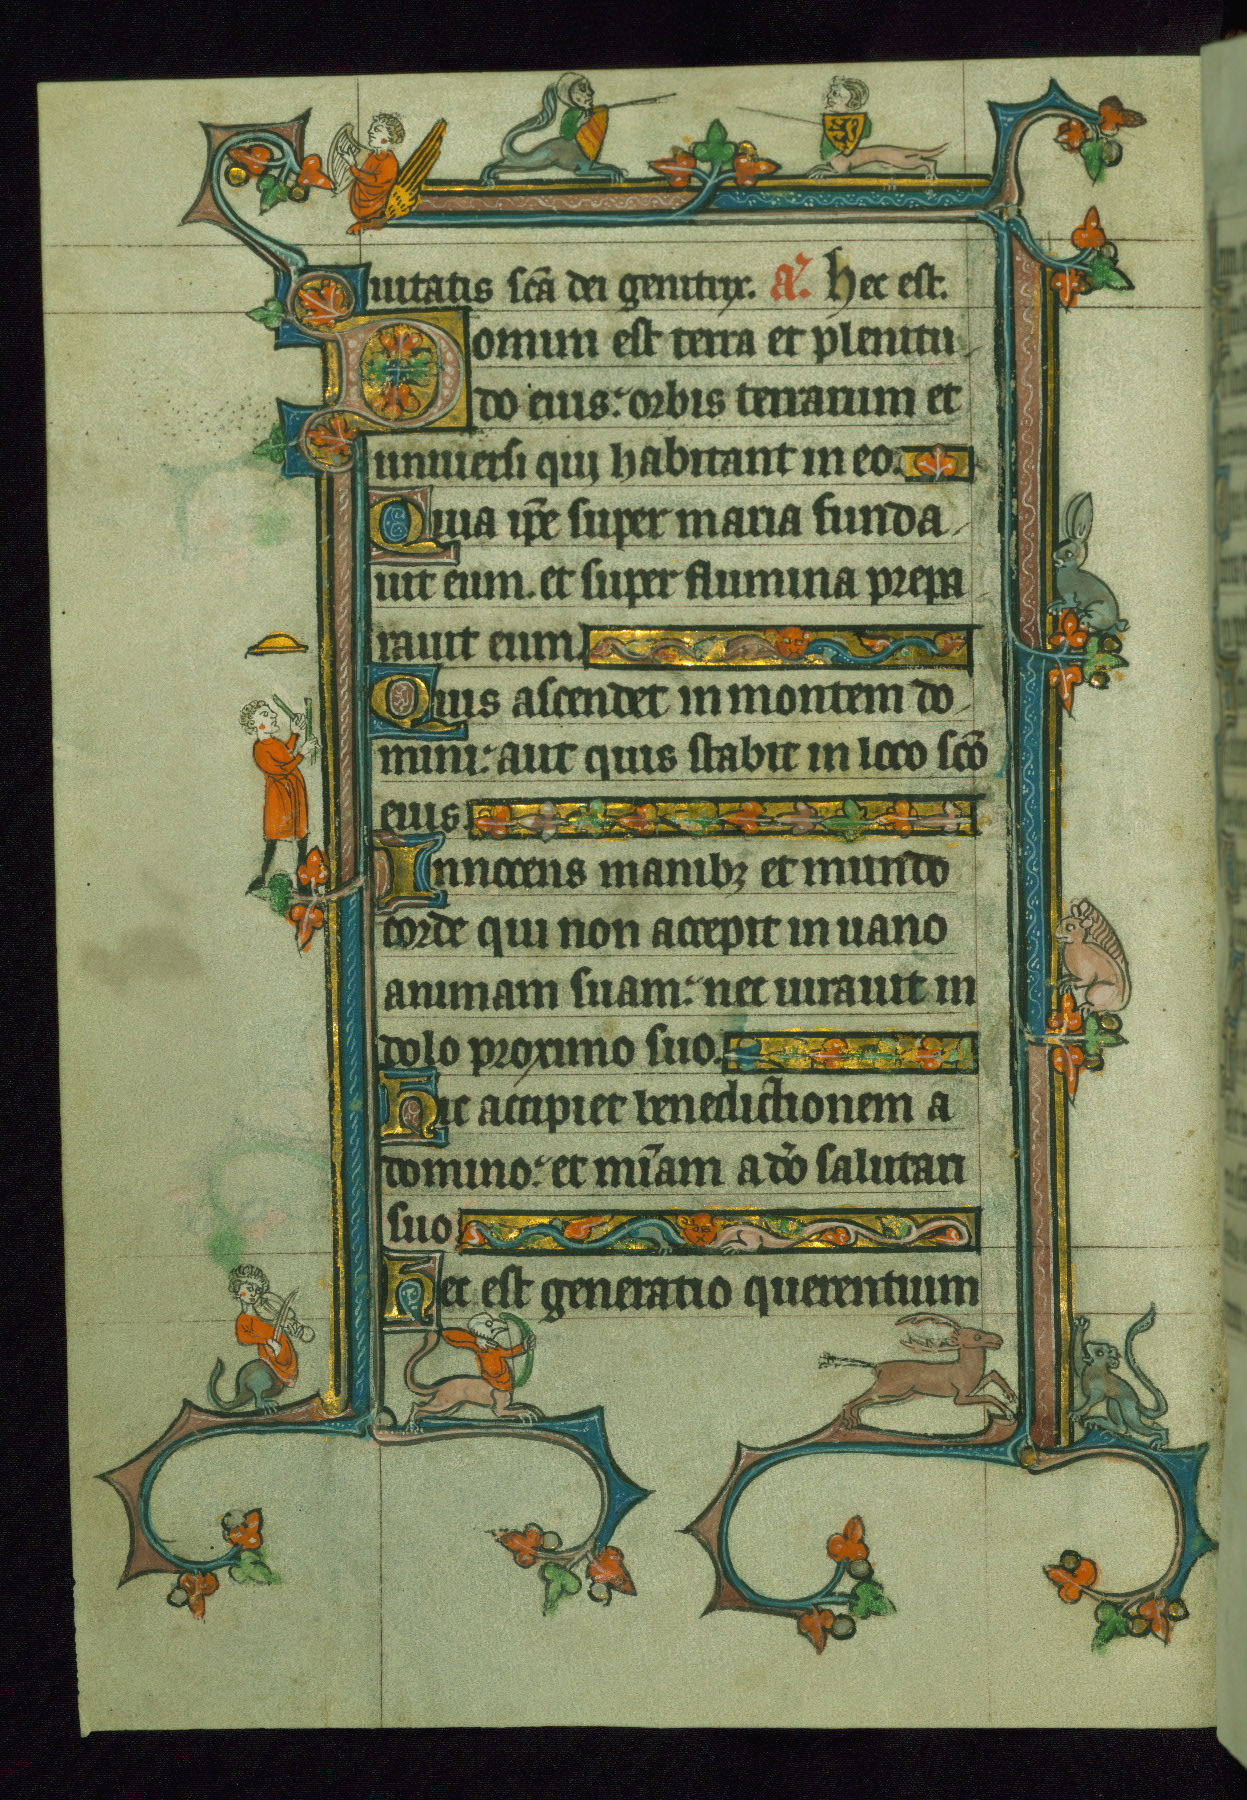 uitatis sc̄a dei genitrix. a᷒. Hec est.
Domini est terra et plenitu
do eius: orbis terrarum et
uniuersi qui habitant in eo.
Quia ip̄e super maria funda
uit eum. et super flumina prepa
rauit eum.
Quis ascendet in montem do
mini: aut quis stabit in loco sc̄o
eius.
Innocens manibꝫ et mundo
corde qui non accepit in uano
animam suam: nec iurauit in
dolo proximo suo.
Hic accipiet benedictionem a
domino: et mi̅am a do̅ salutari
suo.
Hec est generatio querentium